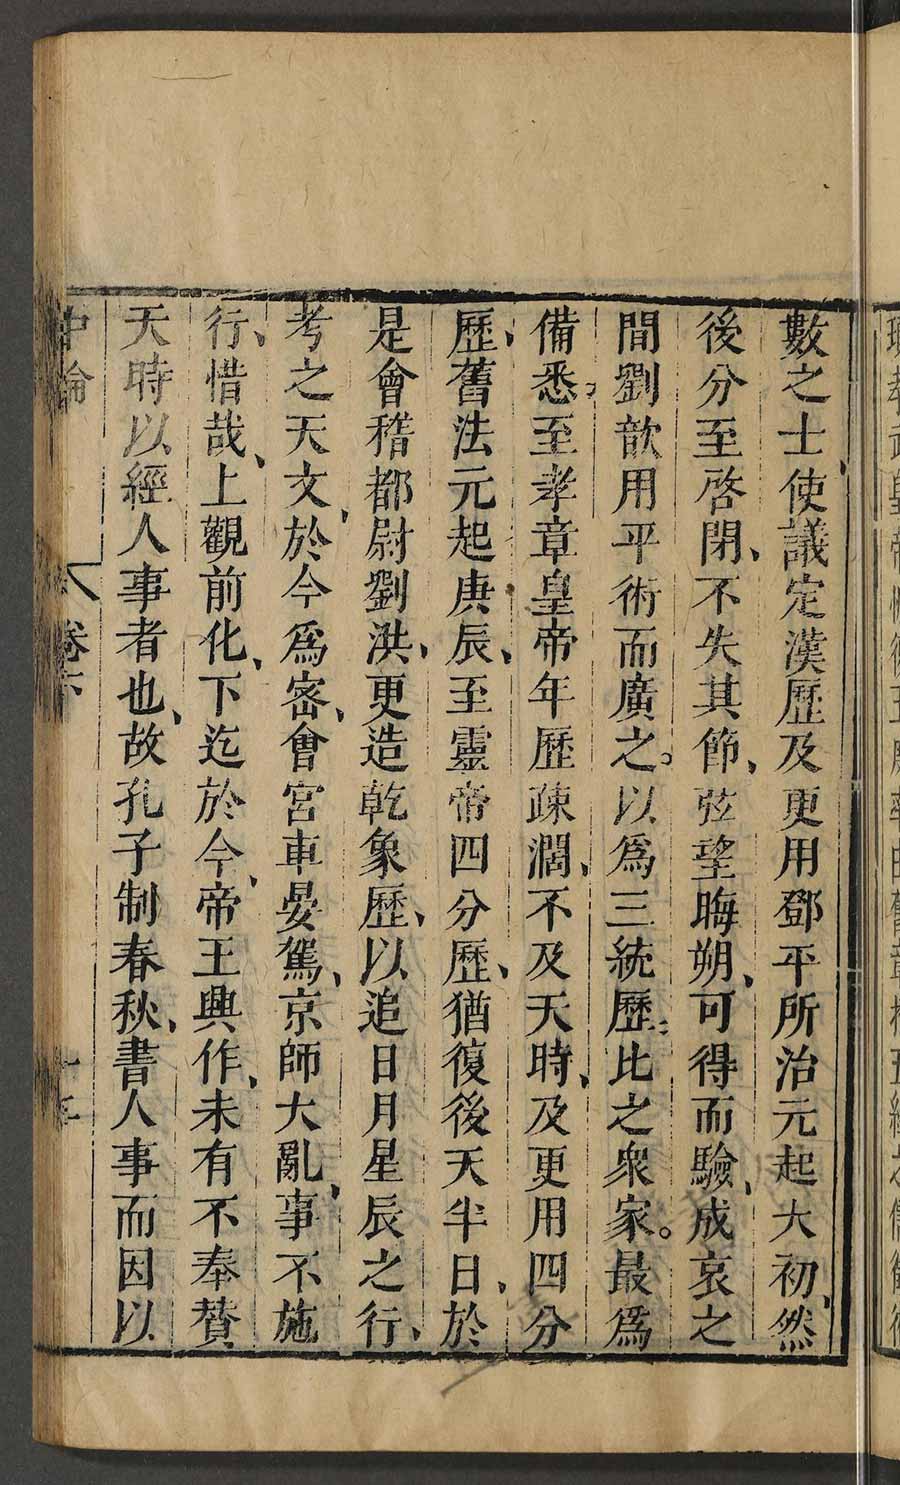 數之士、使議定漢歷及更用鄧平所治元起大初、然
後分至啓閉、不失其節、弦望晦朔、可得而驗、成哀之
間劉歆用平術而廣之。以爲三統歷、比之衆家。最爲
備悉、至孝章皇帝年歷疎濶、不及天時、及更用四分
歷、舊法元起庚辰、至靈帝四分歷、猶復後天半日、於
是會稽都尉劉洪、更造乾象歷、以追日月星辰之行、
考之天文、於今爲密、會宮車晏駕、京師大亂、事不施
行、惜哉、上觀前化、下迄於今、帝王興作、未有不奉贊
天時以經人事者也、故孔子制春秋、書人事而因以
中論 卷下